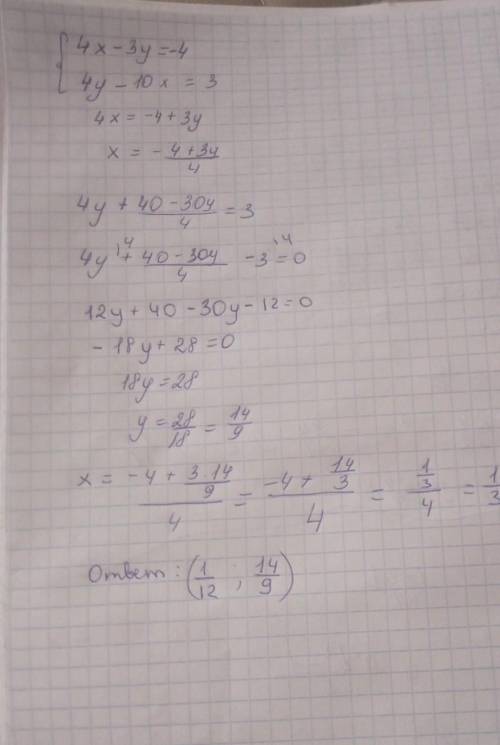 { 4x - 3y = -4
4y - 10x = 3
4x = -4 + 3y
x = - 4 + 3y / 4
4y + 40 - 30y / 4 = 3
4y ^{\4} + 40 - 30y / 4 - 3 ^{\4} = 0
12y + 40 - 30y - 12 = 0
- 18y + 28 = 0
18y = 28
y = 28/18 = 14/9
x = (-4 + 3·14/9) / 4 = (-4 + 14/3) / 4 = (1/3) / 4 = 1/3
Ответ: (1/12 ; 14/9)